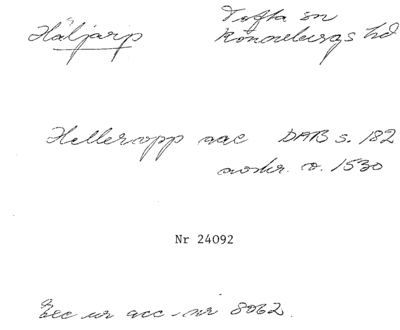 Häljarp
Tofta sn
Rönnebergs hd
Helleropp aac DAB s. 182
avskr. o. 1530
Nr 24092
Exc ur acc. nr 8062.